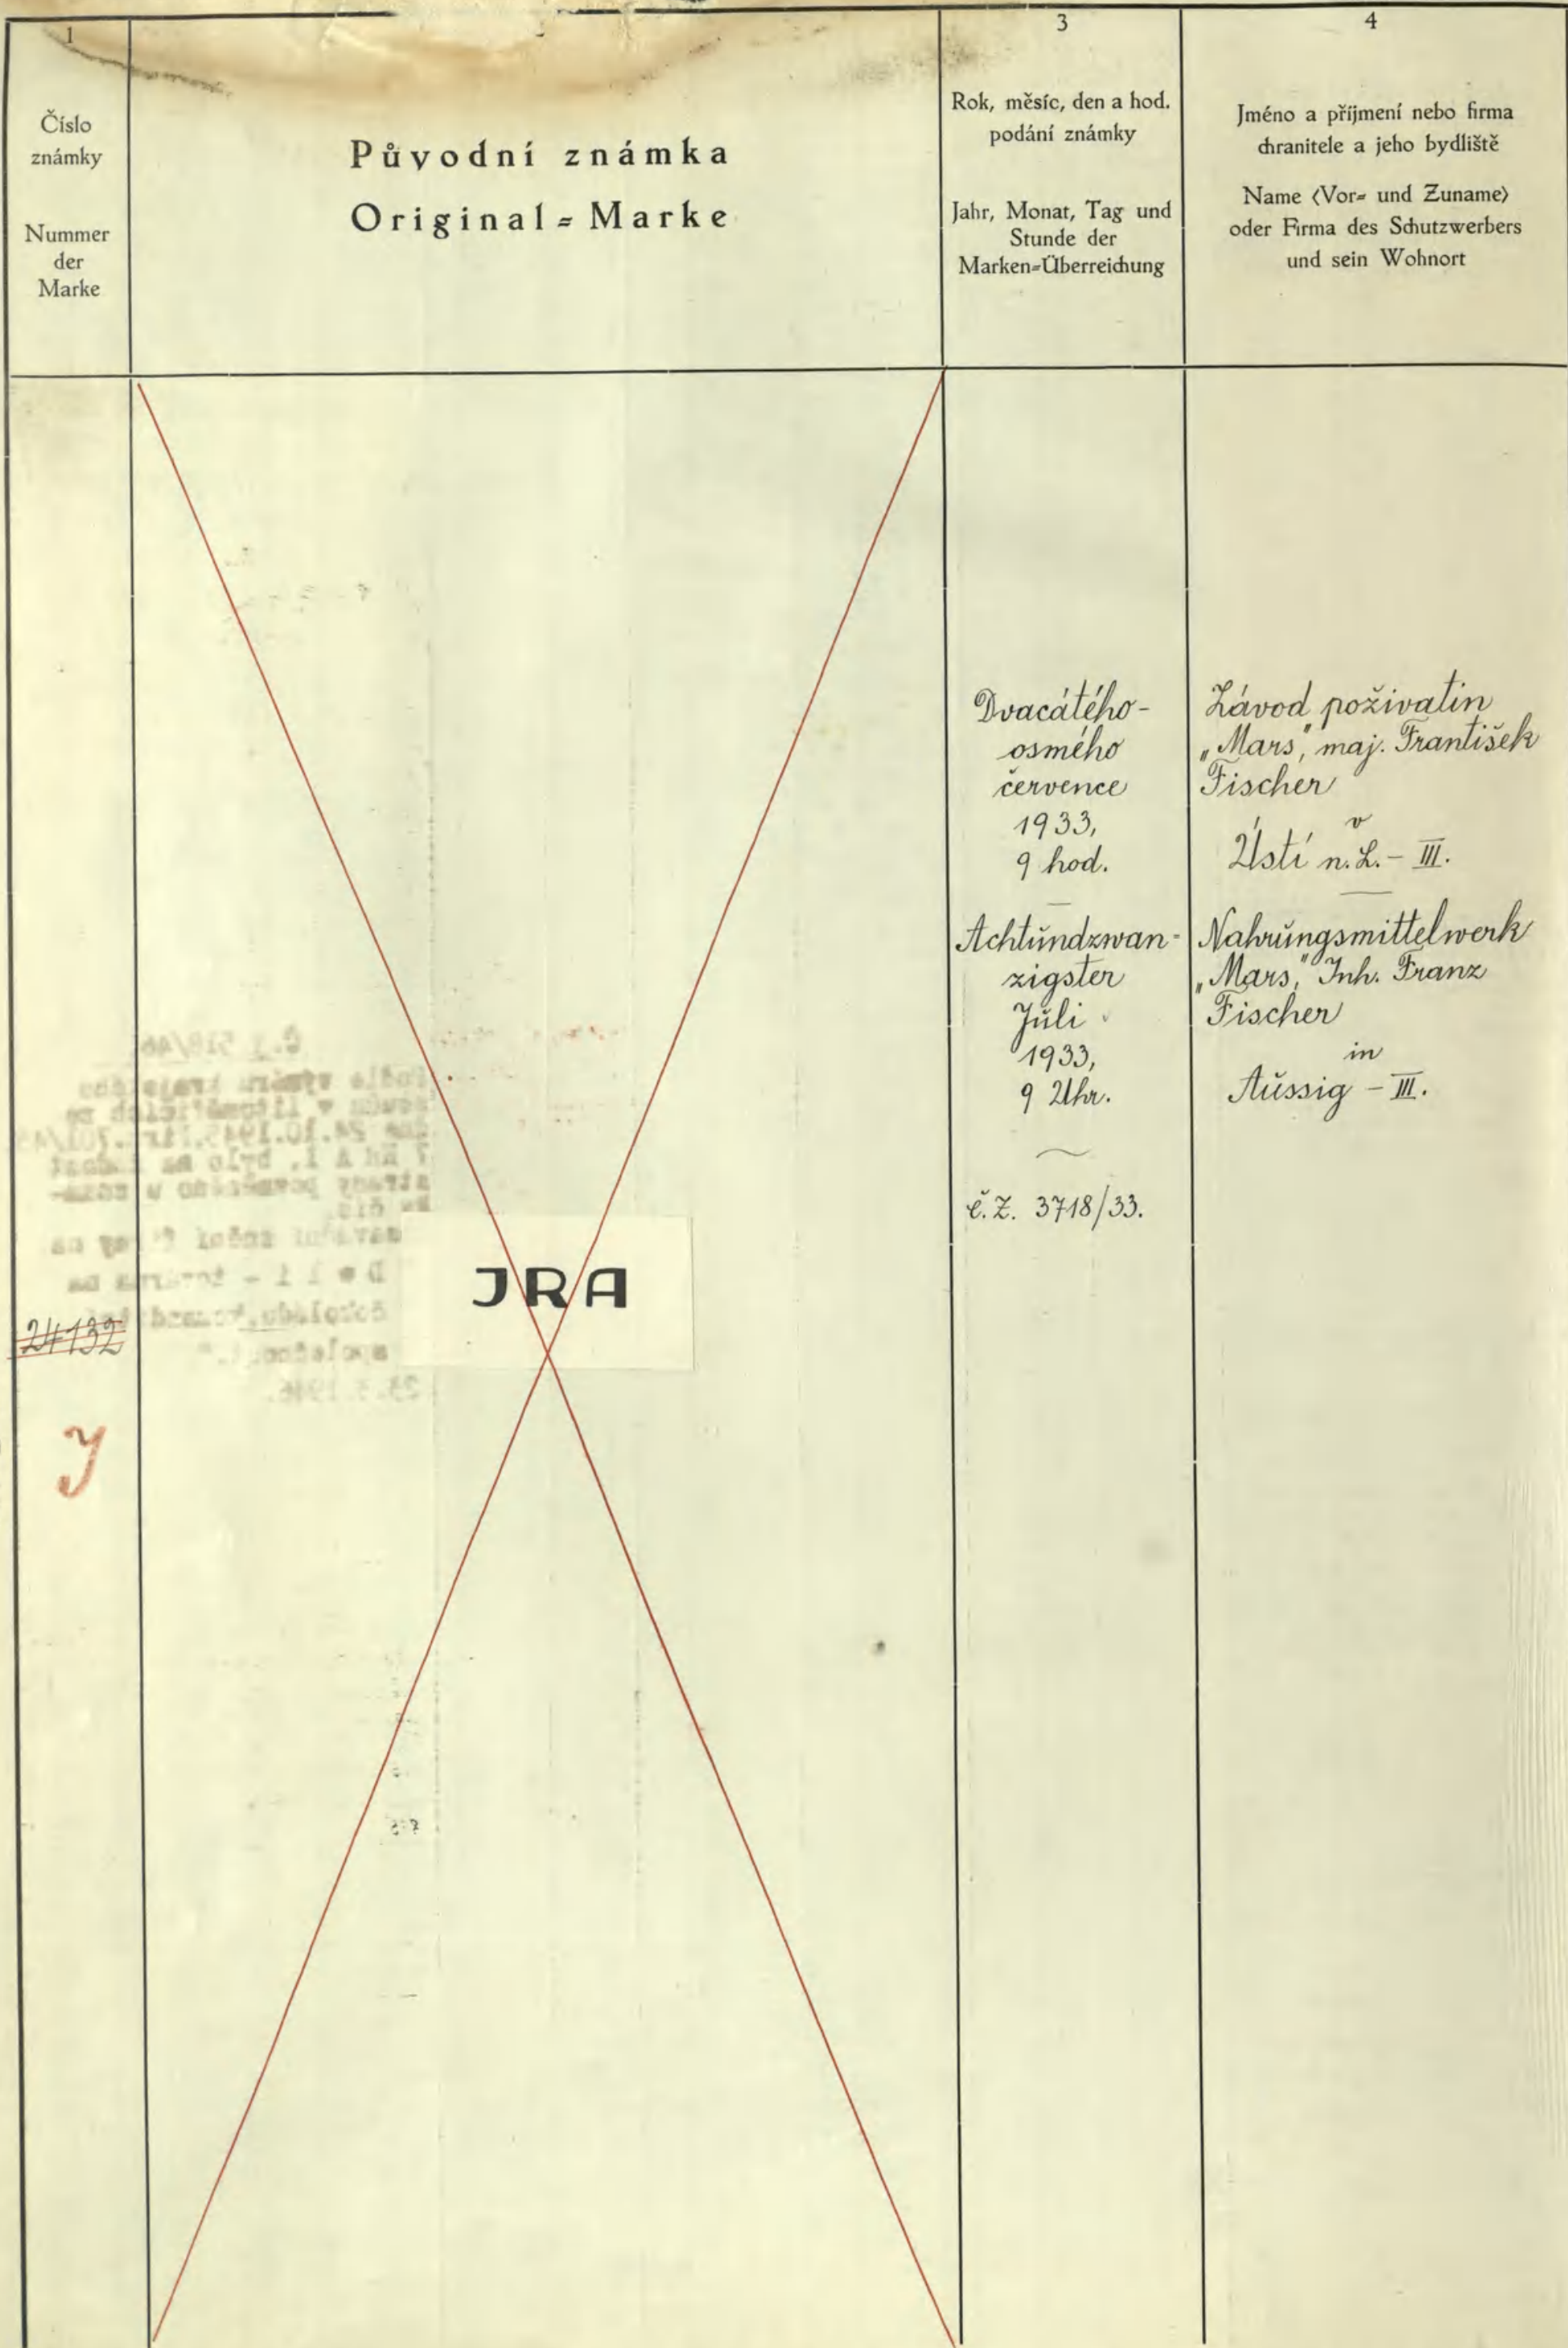 1
Číslo
známky
Nummer
der
Marke
Původní známka
Original=Marke
3
Rok, měsíc, den a hod.
podání známky
Jahr, Monat, Tag und
Stunde der
Marken=Überreichung
4
Jméno a příjmení nebo firma
chranitele a jeho bydliště
Name (Vor= und Zuname)
oder Firma des Schutzwerbers
und sein Wohnort
24132
J
JRA
Dvacátého-
osmého
července
1933,
9 hod.
Achtŭndzwan-
zigster
Jŭli
1933,
9 Uhr.
č.ž. 3718/33.
Závod poživatin
„Mars", maj. František
Fischer
v
Ústí n.L. - III.
Nahrŭngsmittelwerk
„Mars," Inh. Franz
Fischer
in
Aŭssig - III.